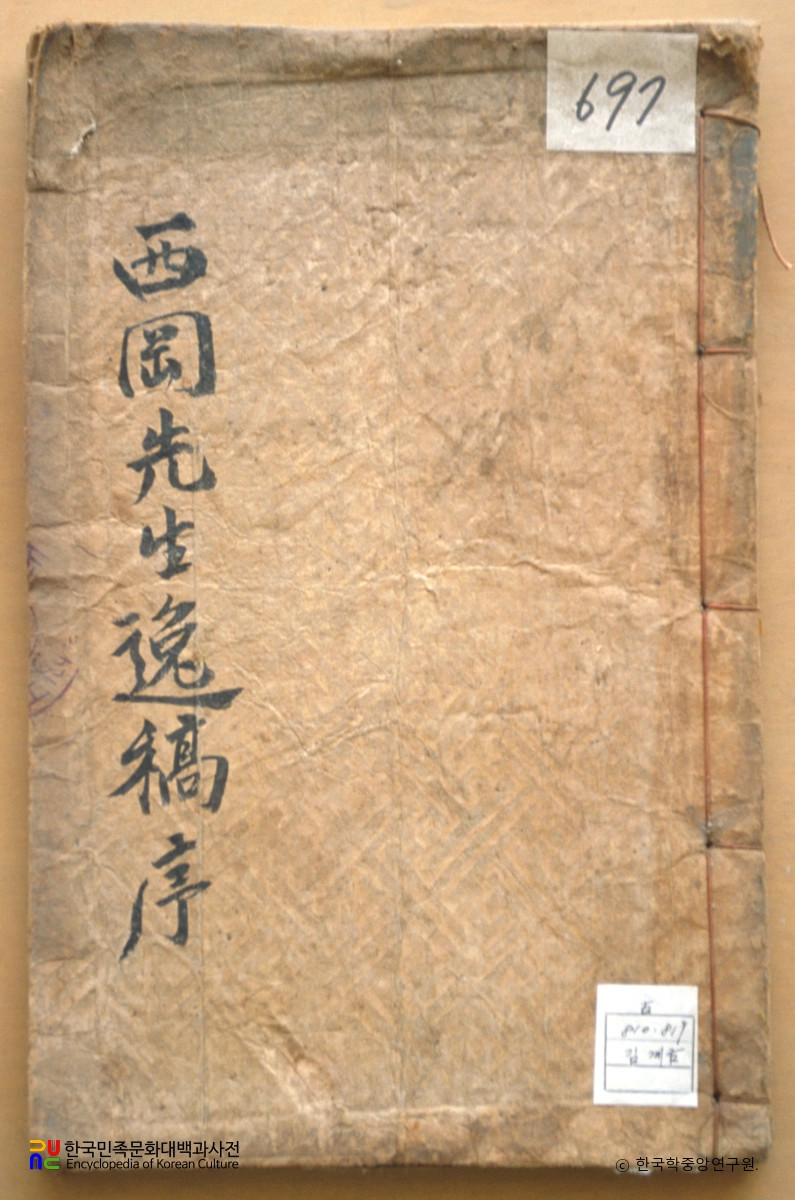 697
西岡先生逸稿序
古
810.819
김계금
한국민족문화대백과사전
Encyclopedia of Korean Culture
© 한국학중앙연구원.